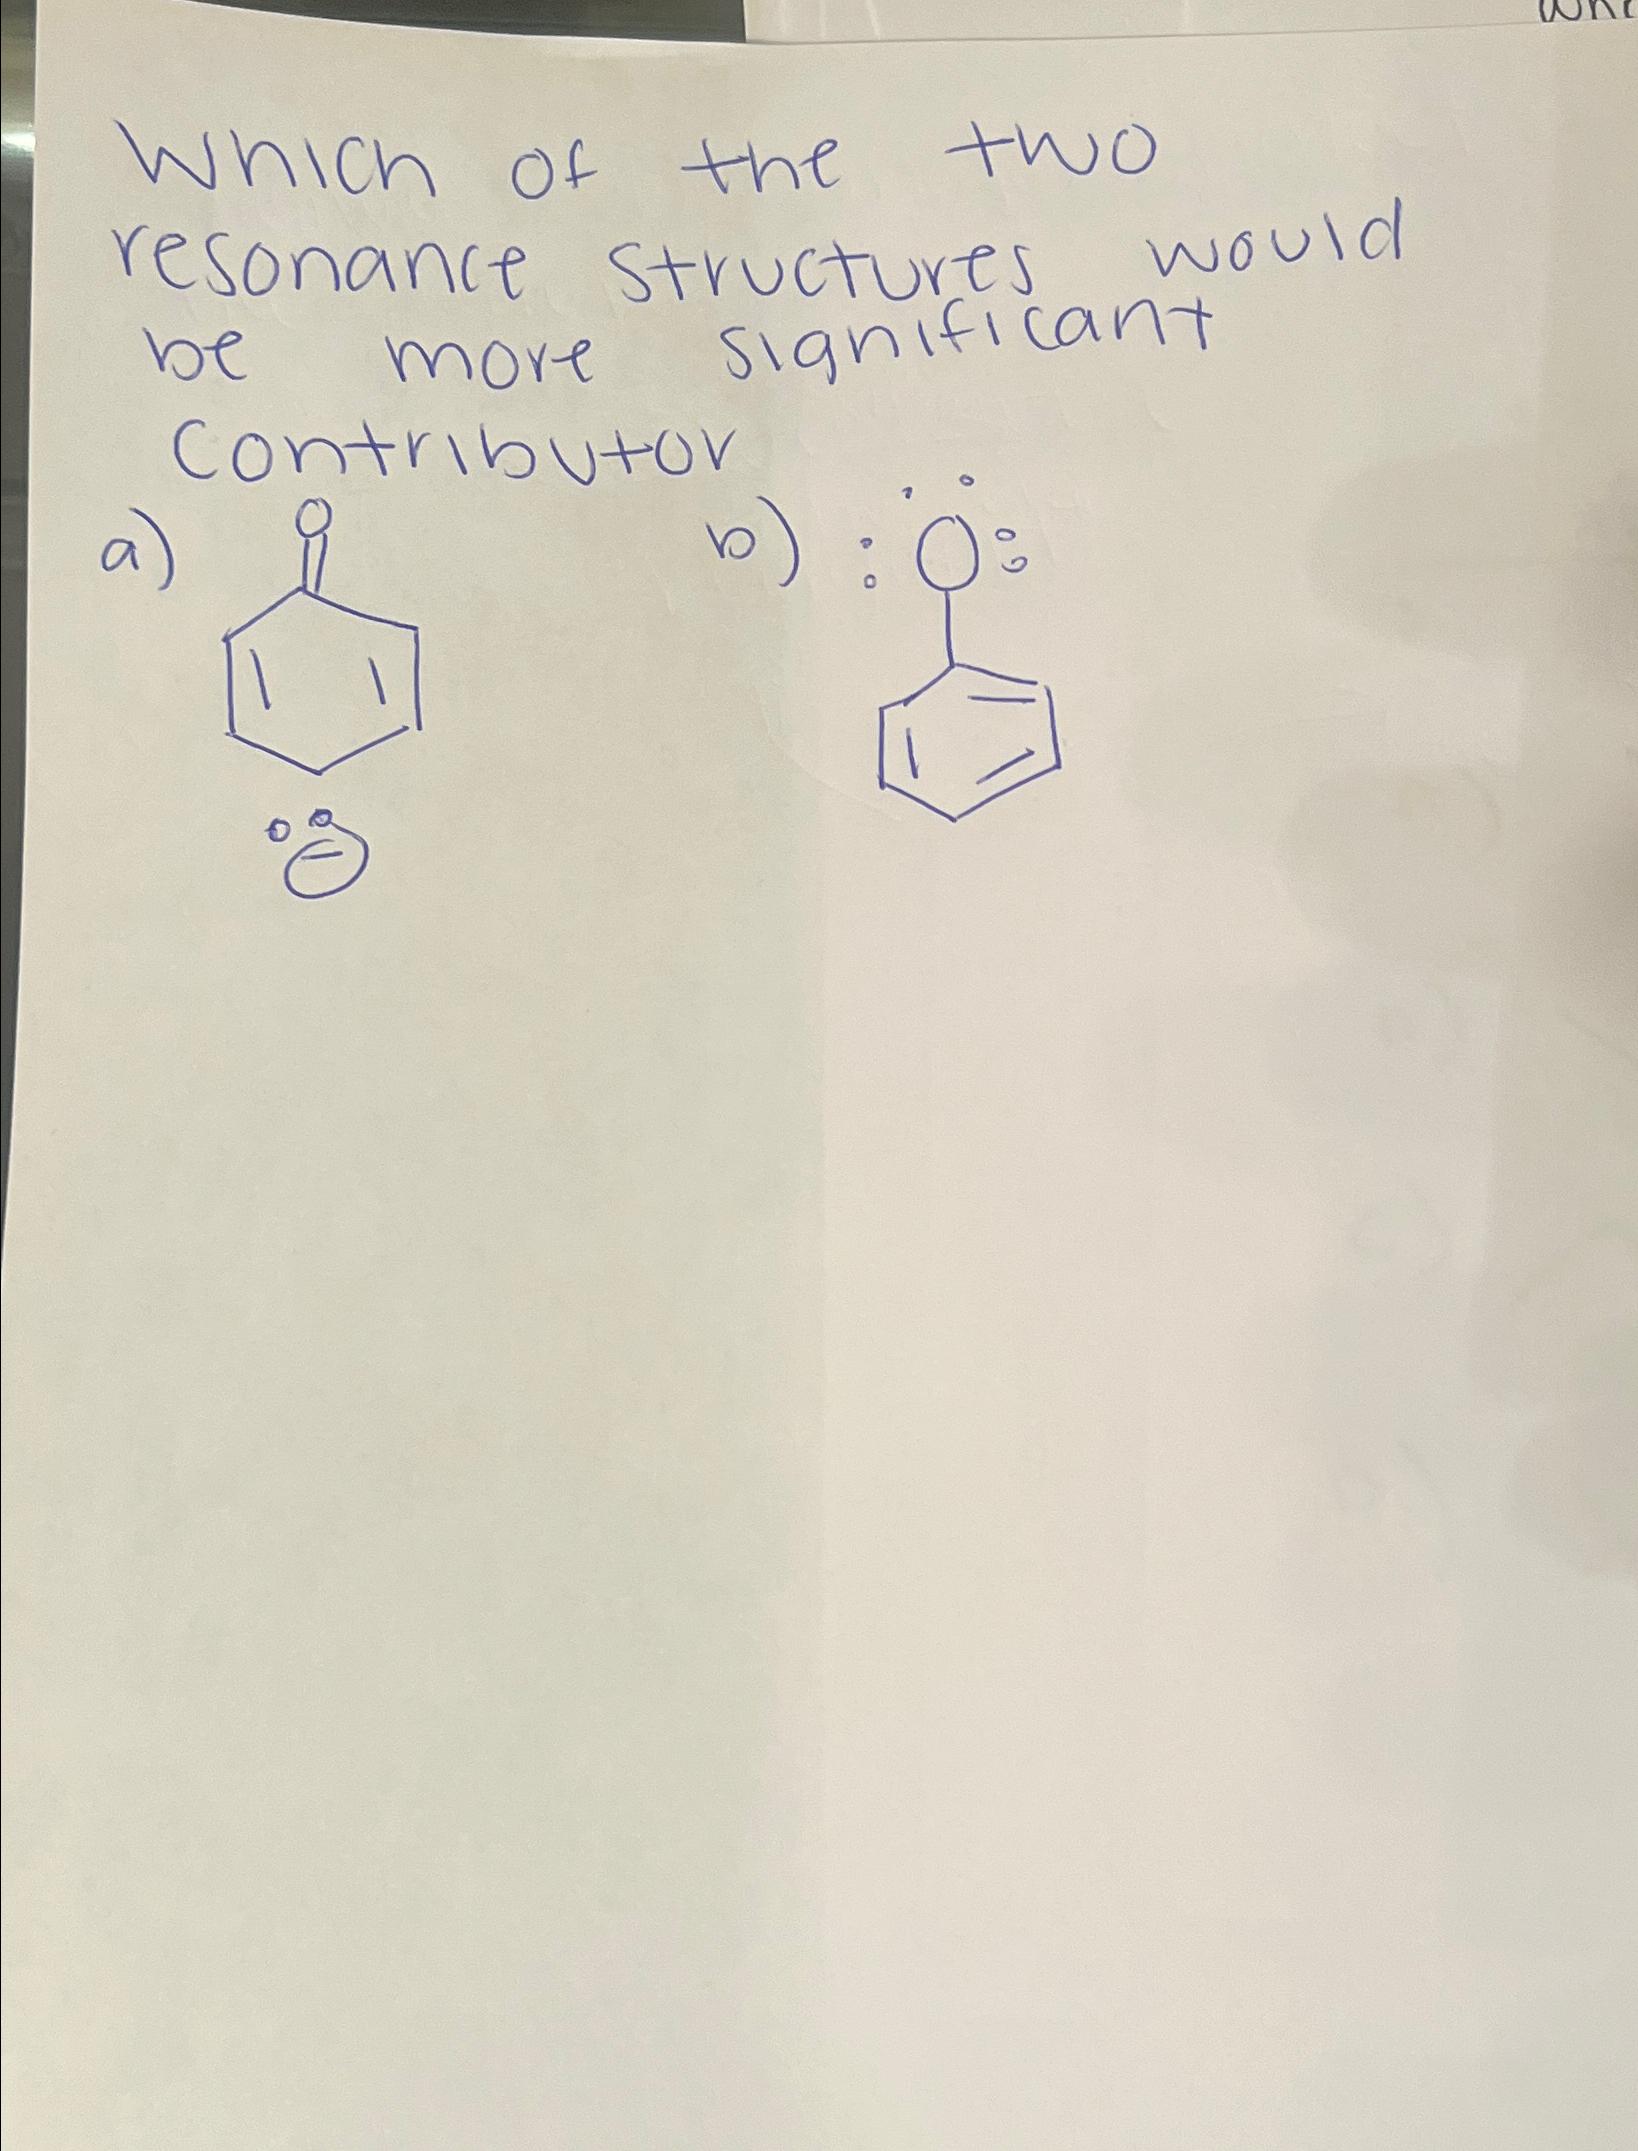 Which of the two
resonance structures would
be more significant
contributor
a) O
b) :O: